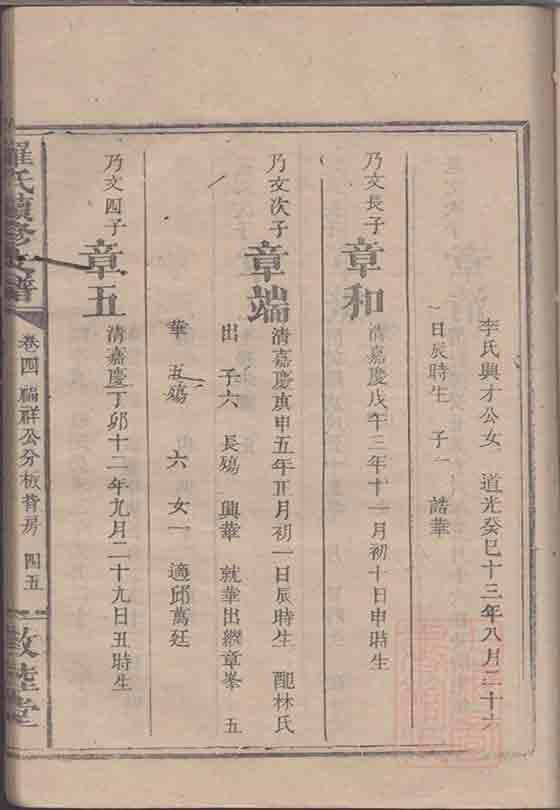 李氏興才公女 道光癸巳十三年八月二十六
日辰時生 子一 誥華
乃文長子 章和 清嘉慶戊午三年十一月初十日申時生
乃文次子 章端 清嘉慶庚申五年正月初一日辰時生 配林氏
出 子六 長殤 興華 就華出繼章峯 五
華 五殤 六 女一 適邱萬廷
乃文四子 章五 清嘉慶丁卯十二年九月二十九日丑時生
羅氏續修支譜 卷四 福祥公分板背房 四五 敦睦堂